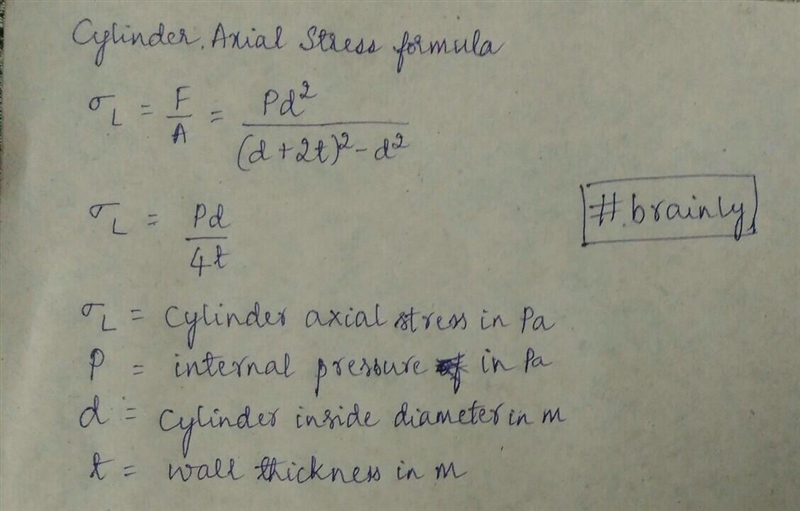 Cylinder. Axial Stress formula
σL = F/A = Pd²/((d+2t)²-d²)
σL = Pd/4t
#.brainly
σL = Cylinder axial stress in Pa
P = internal pressure in Pa
d = Cylinder inside diameter in m
t = wall thickness in m